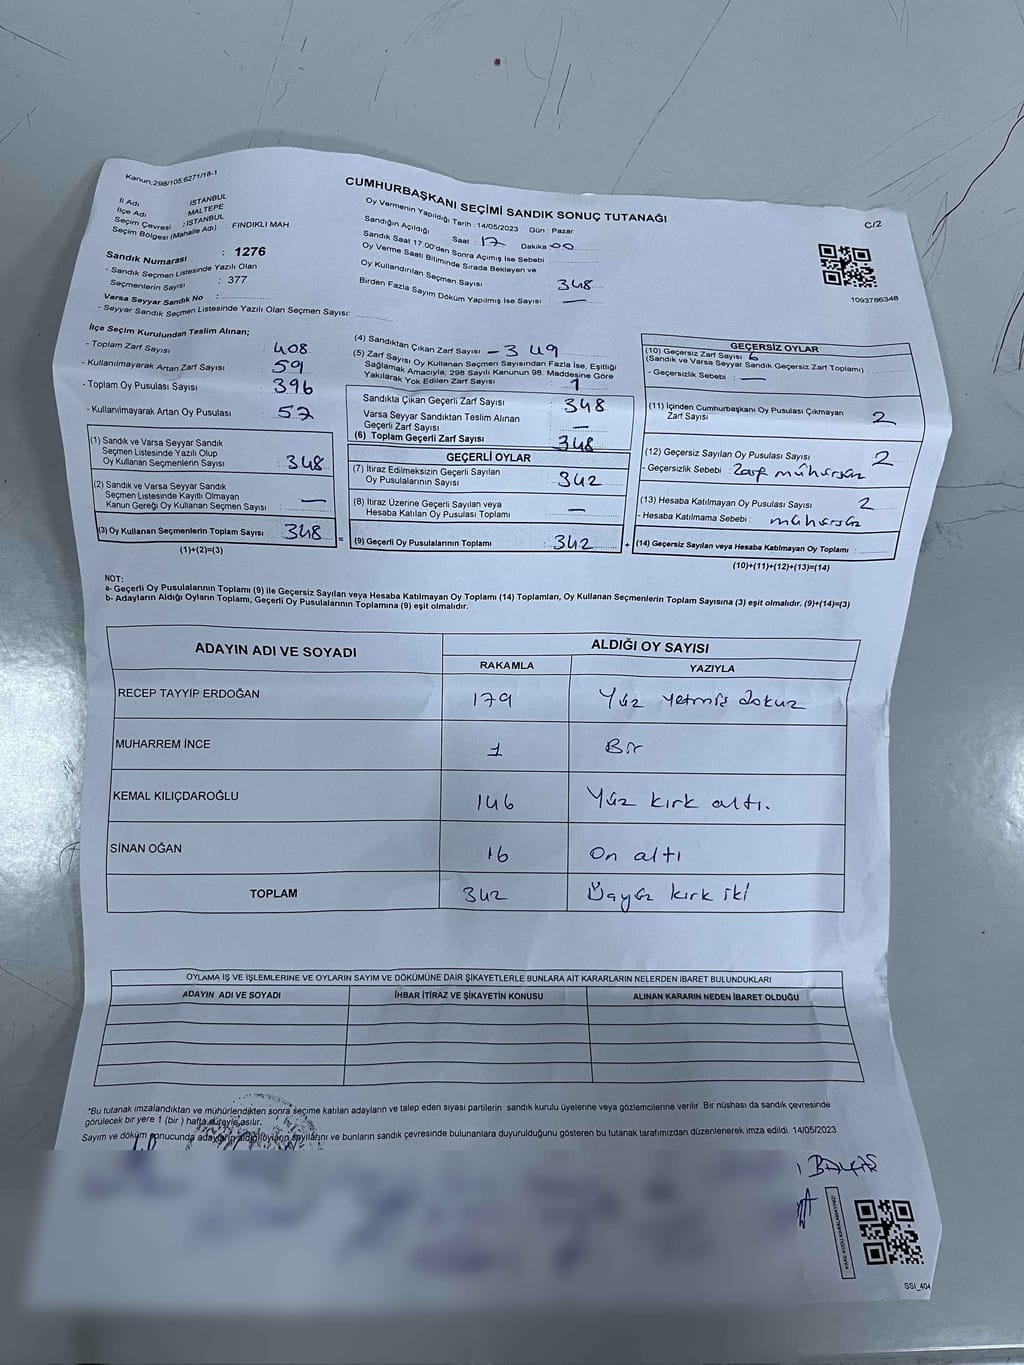 Kanun:298/105;6271/18-1
CUMHURBAŞKANI SEÇİMİ SANDIK SONUÇ TUTANAĞI
C/2
İl Adı : İSTANBUL
İlçe Adı : MALTEPE
Seçim Çevresi : İSTANBUL
Seçim Bölgesi (Mahalle Adı) : FINDIKLI MAH.
Sandık Numarası : 1276
- Sandık Seçmen Listesinde Yazılı Olan
Seçmenlerin Sayısı : 377
Varsa Seyyar Sandık No :
- Seyyar Sandık Seçmen Listesinde Yazılı Olan Seçmen Sayısı:
Oy Vermenin Yapıldığı Tarih : 14/05/2023 Gün : Pazar
Sandığın Açıldığı Saat : 17 Dakika : 00
Sandık Saat 17:00'den Sonra Açılmış İse Sebebi :
Oy Verme Saati Bitiminde Sırada Bekleyen ve
Oy Kullandırılan Seçmen Sayısı 348
Birden Fazla Sayım Döküm Yapılmış İse Sayısı : —
1093786348
İlçe Seçim Kurulundan Teslim Alınan;
- Toplam Zarf Sayısı : 408
- Kullanılmayarak Artan Zarf Sayısı : 59
- Toplam Oy Pusulası Sayısı : 396
- Kullanılmayarak Artan Oy Pusulası : 52
(1) Sandık ve Varsa Seyyar Sandık
Seçmen Listesinde Yazılı Olup
Oy Kullanan Seçmenlerin Sayısı : 348
(2) Sandık ve Varsa Seyyar Sandık
Seçmen Listesinde Kayıtlı Olmayan
Kanun Gereği Oy Kullanan Seçmen Sayısı : —
(3) Oy Kullanan Seçmenlerin Toplam Sayısı : 348
(1)+(2)=(3)
(4) Sandıktan Çıkan Zarf Sayısı - 349
(5) Zarf Sayısı Oy Kullanan Seçmen Sayısından Fazla İse, Eşitliği
Sağlamak Amacıyla, 298 Sayılı Kanunun 98. Maddesine Göre
Yakılarak Yok Edilen Zarf Sayısı : 1
Sandıkta Çıkan Geçerli Zarf Sayısı : 348
Varsa Seyyar Sandıktan Teslim Alınan
Geçerli Zarf Sayısı : —
(6) Toplam Geçerli Zarf Sayısı : 348
GEÇERLİ OYLAR
(7) İtiraz Edilmeksizin Geçerli Sayılan
Oy Pusulalarının Sayısı : 342
(8) İtiraz Üzerine Geçerli Sayılan veya
Hesaba Katılan Oy Pusulası Toplamı : —
= (9) Geçerli Oy Pusulalarının Toplamı : 342 +
GEÇERSİZ OYLAR
(10) Geçersiz Zarf Sayısı : 6
(Sandık ve Varsa Seyyar Sandık Geçersiz Zarf Toplamı)
- Geçersizlik Sebebi : —
(11) İçinden Cumhurbaşkanı Oy Pusulası Çıkmayan
Zarf Sayısı 2
(12) Geçersiz Sayılan Oy Pusulası Sayısı 2
- Geçersizlik Sebebi : Zarf mühürsüz
(13) Hesaba Katılmayan Oy Pusulası Sayısı 2
- Hesaba Katılmama Sebebi : mühürsüz
(14) Geçersiz Sayılan veya Hesaba Katılmayan Oy Toplamı :
(10)+(11)+(12)+(13)=(14)
NOT:
a- Geçerli Oy Pusulalarının Toplamı (9) ile Geçersiz Sayılan veya Hesaba Katılmayan Oy Toplamı (14) Toplamları, Oy Kullanan Seçmenlerin Toplam Sayısına (3) eşit olmalıdır. (9)+(14)=(3)
b- Adayların Aldığı Oyların Toplamı, Geçerli Oy Pusulalarının Toplamına (9) eşit olmalıdır.
ADAYIN ADI VE SOYADI ALDIĞI OY SAYISI
RAKAMLA YAZIYLA
RECEP TAYYİP ERDOĞAN 179 Yüz yetmiş dokuz
MUHARREM İNCE 1 Bir
KEMAL KILIÇDAROĞLU 146 Yüz kırk altı.
SİNAN OĞAN 16 On altı
TOPLAM 342 Üçyüz kırk iki
OYLAMA İŞ VE İŞLEMLERİNE VE OYLARIN SAYIM VE DÖKÜMÜNE DAİR ŞİKAYETLERLE BUNLARA AİT KARARLARIN NELERDEN İBARET BULUNDUKLARI
ADAYIN ADI VE SOYADI İHBAR İTİRAZ VE ŞİKAYETİN KONUSU ALINAN KARARIN NEDEN İBARET OLDUĞU
*Bu tutanak imzalandıktan ve mühürlendikten sonra seçime katılan adayların ve talep eden siyasi partilerin sandık kurulu üyelerine veya gözlemcilerine verilir. Bir nüshası da sandık çevresinde
görülecek bir yere 1 (bir) hafta süreyle asılır.
Sayım ve döküm sonucunda adayların aldığı oyların sayılarını ve bunların sandık çevresinde bulunanlara duyurulduğunu gösteren bu tutanak tarafımızdan düzenlenerek imza edildi. 14/05/2023
KARE KODU KARALAMAYINIZ!
SSI_404